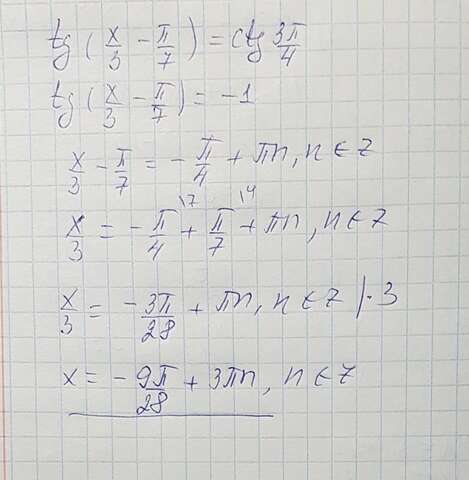 tg(x/3 - π/7) = ctg 3π/4
tg(x/3 - π/7) = -1
x/3 - π/7 = -π/4 + πn, n ∈ Z
x/3 = -π/4 \7 + π/7 \4 + πn, n ∈ Z
x/3 = -3π/28 + πn, n ∈ Z |·3
x = -9π/28 + 3πn, n ∈ Z